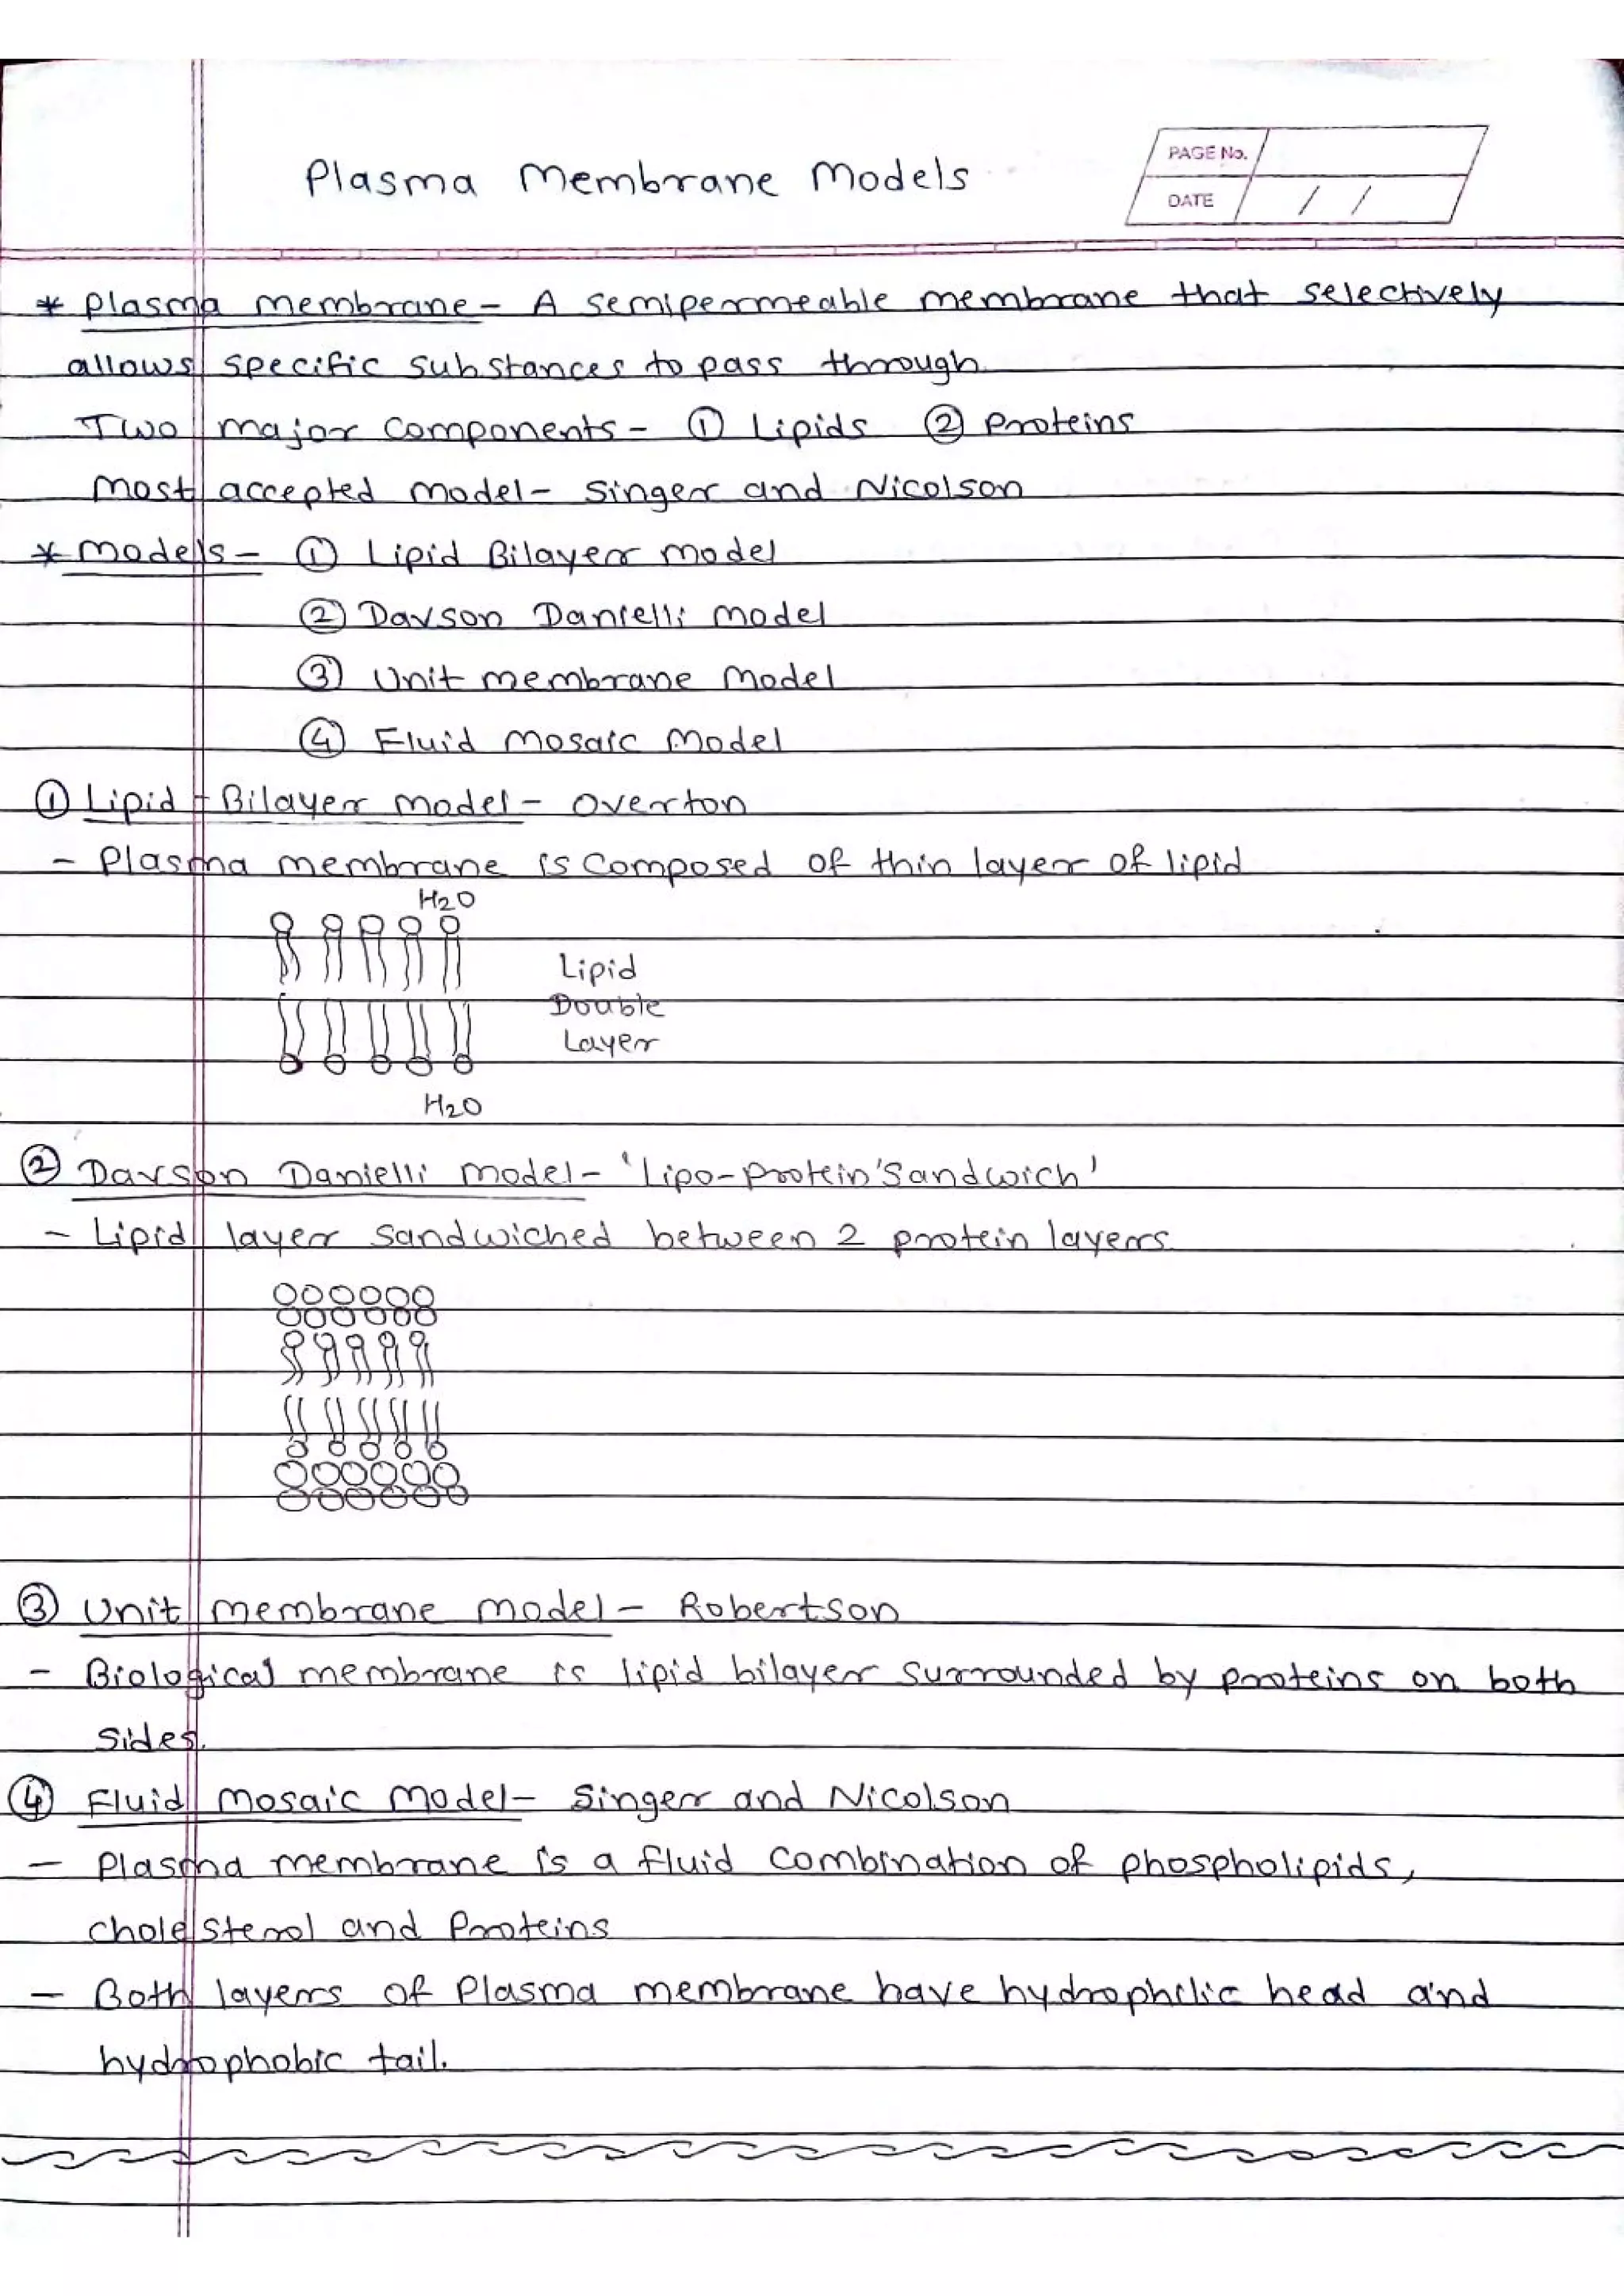 Plasma Membrane Models
PAGE No.
DATE / /
* Plasma membrane - A semipermeable membrane that selectively
allows specific substances to pass through.
Two major components - ① Lipids ② Proteins
Most accepted model - Singer and Nicolson
* Models - ① Lipid Bilayer model
② Davson Danielli model
③ Unit membrane Model
④ Fluid Mosaic Model
① Lipid - Bilayer model - Overton
- Plasma membrane is composed of thin layer of lipid
H2O
Lipid
Double
Layer
H2O
② Davson Danielli model - 'Lipo-protein 'Sandwich'
- Lipid layer sandwiched between 2 protein layers.
③ Unit membrane model - Robertson
- Biological membrane is lipid bilayer surrounded by proteins on both
sides.
④ Fluid mosaic model - Singer and Nicolson
- Plasma membrane is a fluid combination of phospholipids,
cholesterol and Proteins
- Both layers of Plasma membrane have hydrophilic head and
hydrophobic tail.